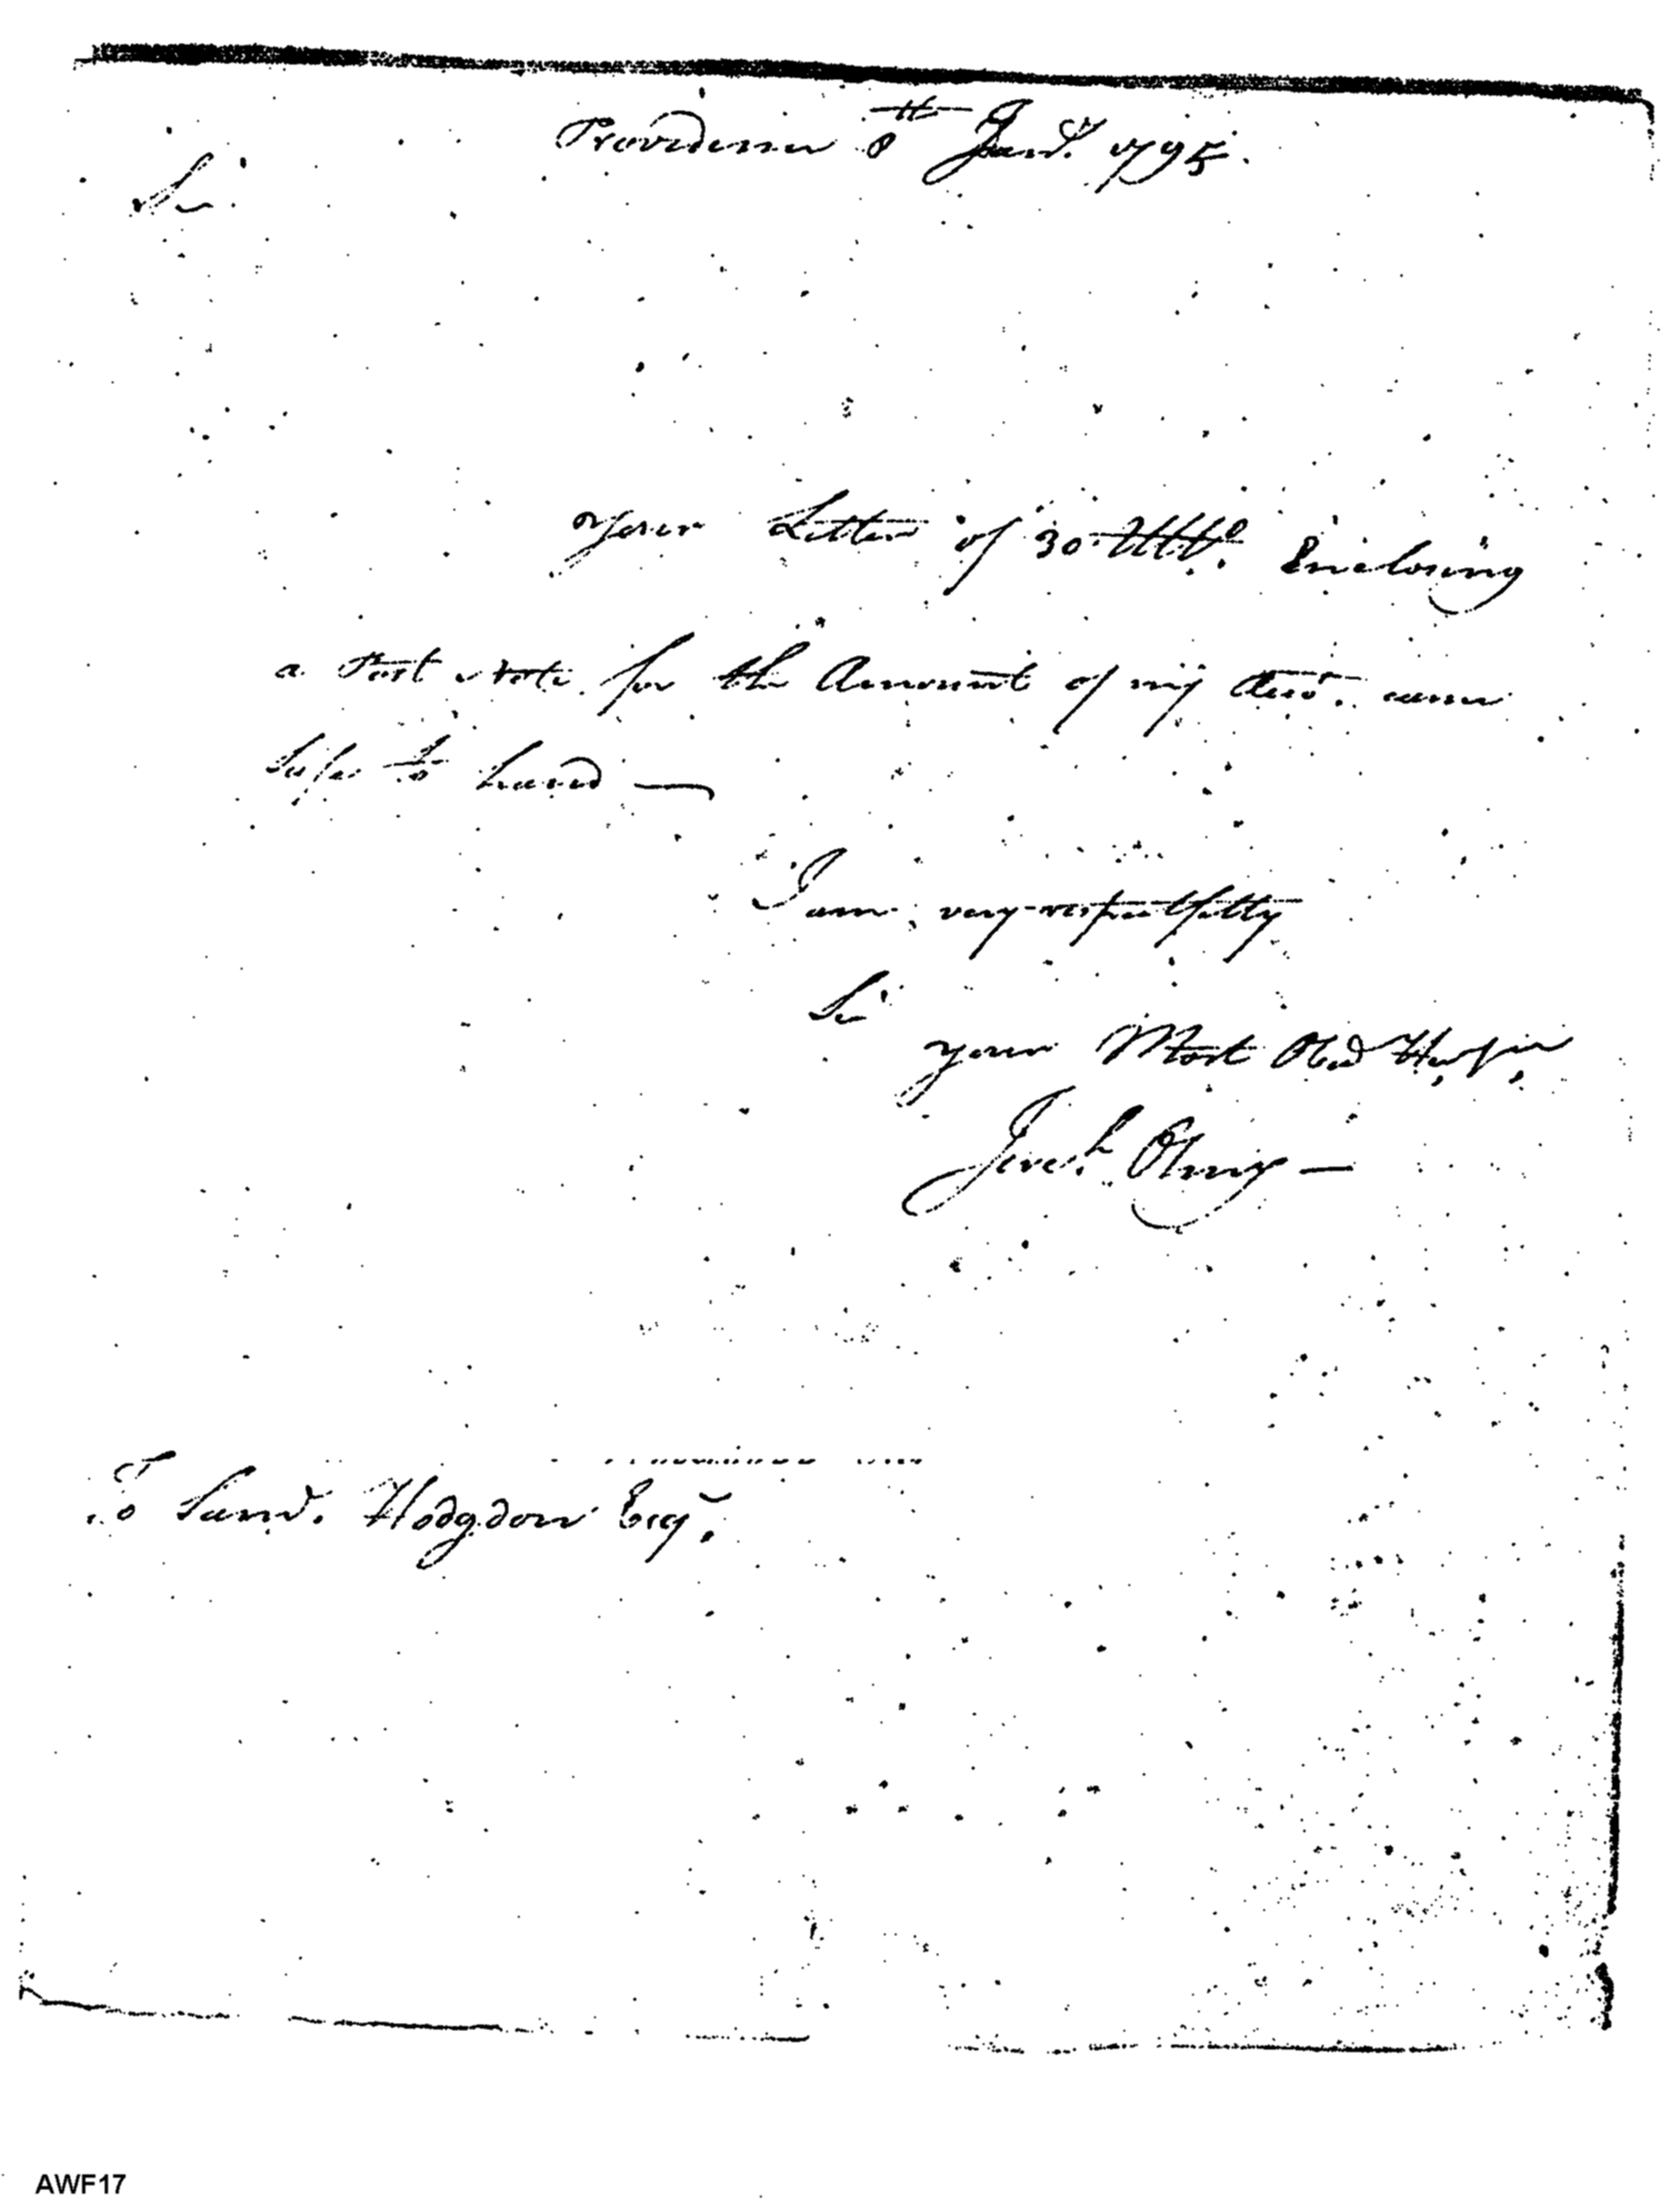 Providence 8th Jany. 1795.
Sir.
Your Letter of 30 Ulto. Enclosing
a Post Note for the Amount of my Acco. came
safe to hand —
I am, very respectfully
Sir
Your Most Obed Hu Ser
Jereh. Olney —
To Saml. Hodgdon Esqr.
AWF17